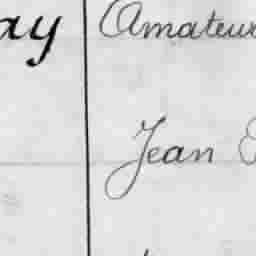 ay Amateur
Jean